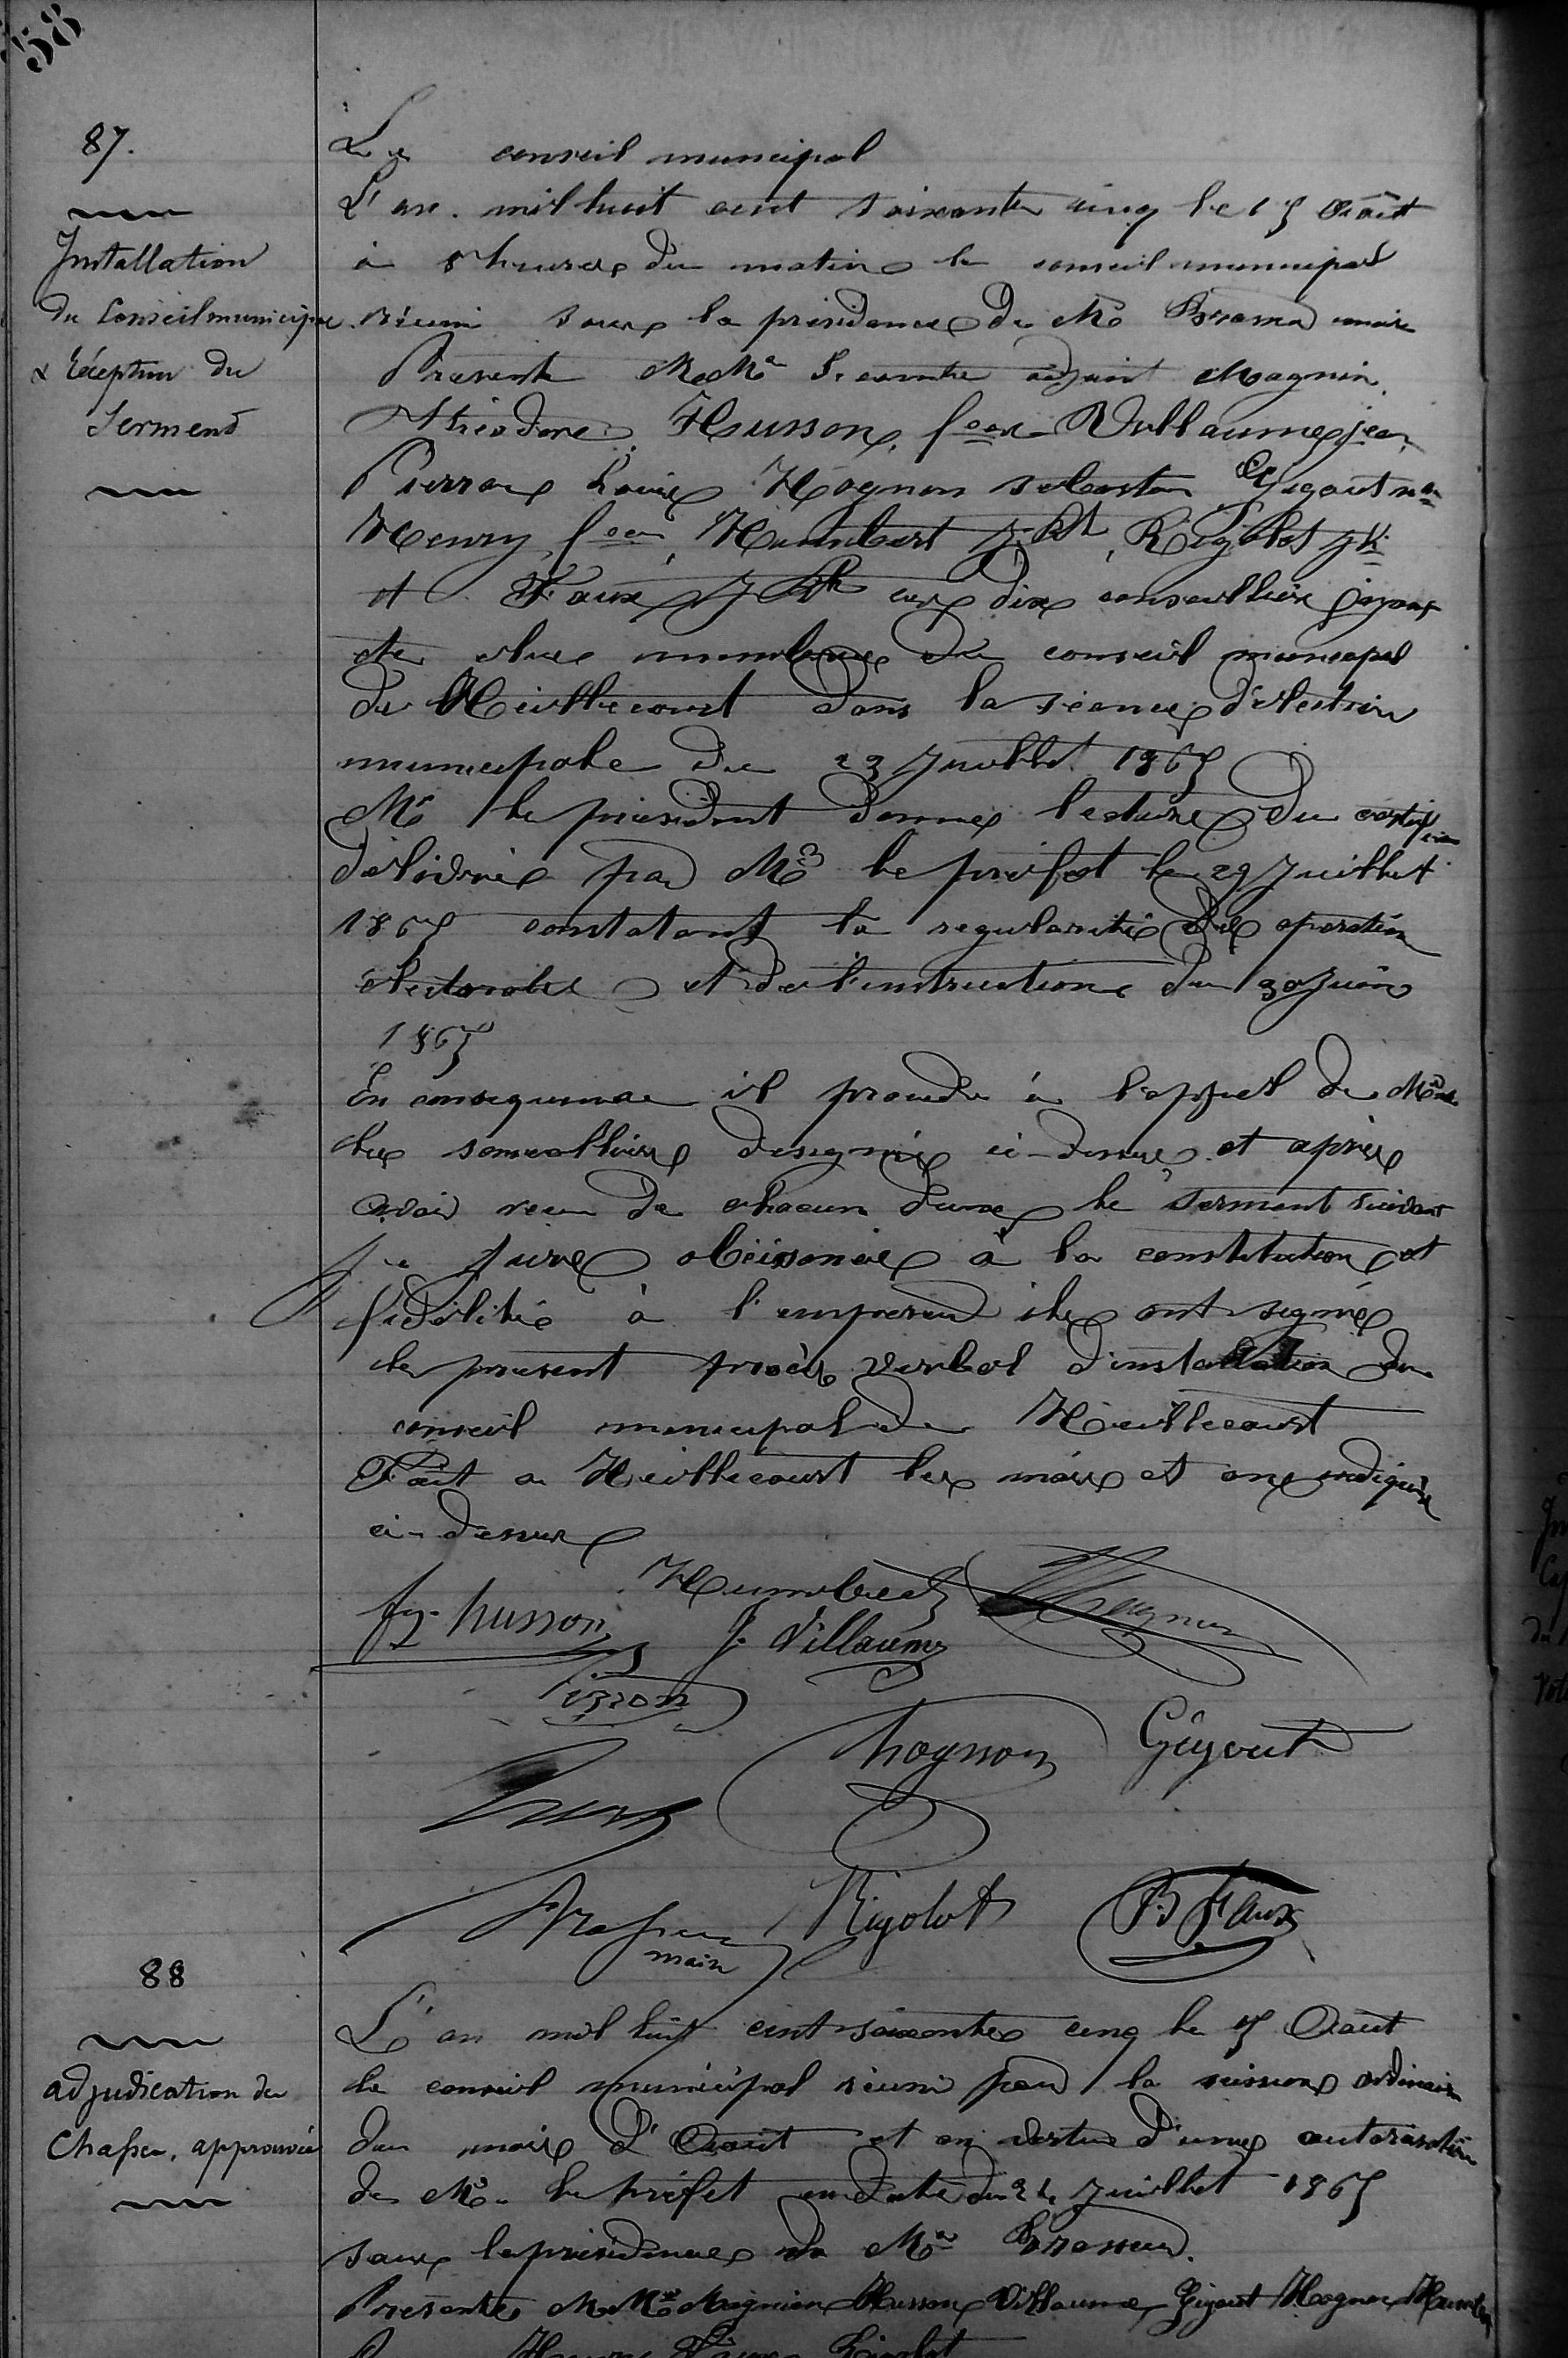 58
87.
Installation
du Conseil municipal
& Réception du
Serment
Le conseil municipal
L'an mil huit cent soixante cinq le 15 Août
à 8 heures du matin le conseil municipal
réuni sous la présidence de Mr maire
Présents MMrs adjoint Magnin
Théodore, Husson fcois Vuillaume jean
Pierron Louis Hognon sebastien Gegout
Henry fcois, Humbert j. bte, Rigolot
et Faux J Bte ces dix conseillers
été élus membres du conseil municipal
de Heillecourt dans la séance d'élection
municipale du 23 Juillet 1865
Mr le président donne lecture du
délivré par Mr le préfet le 29 Juillet
1865 constatant la regularité des operation
électorales et de l'instruction du 30 Juin
1865
En consequence il procede à l'appel de
les conseillers designés ci-dessus et après
avoir recu de chacun deux le serment suivant
je jure obéissance à la constitution et
fidélité à l'empereur ils ont signé
le present procès verbal d'installation du
conseil municipal de Heillecourt
Fait a Heillecourt les mois et an
ci-dessus
Humbert
fs. husson J. Villaume
Pierron
hognon Gégout
Rigolot B Faux
maire
88
adjudication de
Chasse, approuvée
L'an mil huit cent soixante cinq le 15 Août
le conseil municipal réuni pour la session ordinaire
du mois d'Aout et en vertu d'une autorisation
de Mr le préfet en date du 24 Juillet 1865
sous la présidence de Mr
Présents MMrs Magnien Husson Villaume Gigout Hognon Humbert
Henry Rigolot